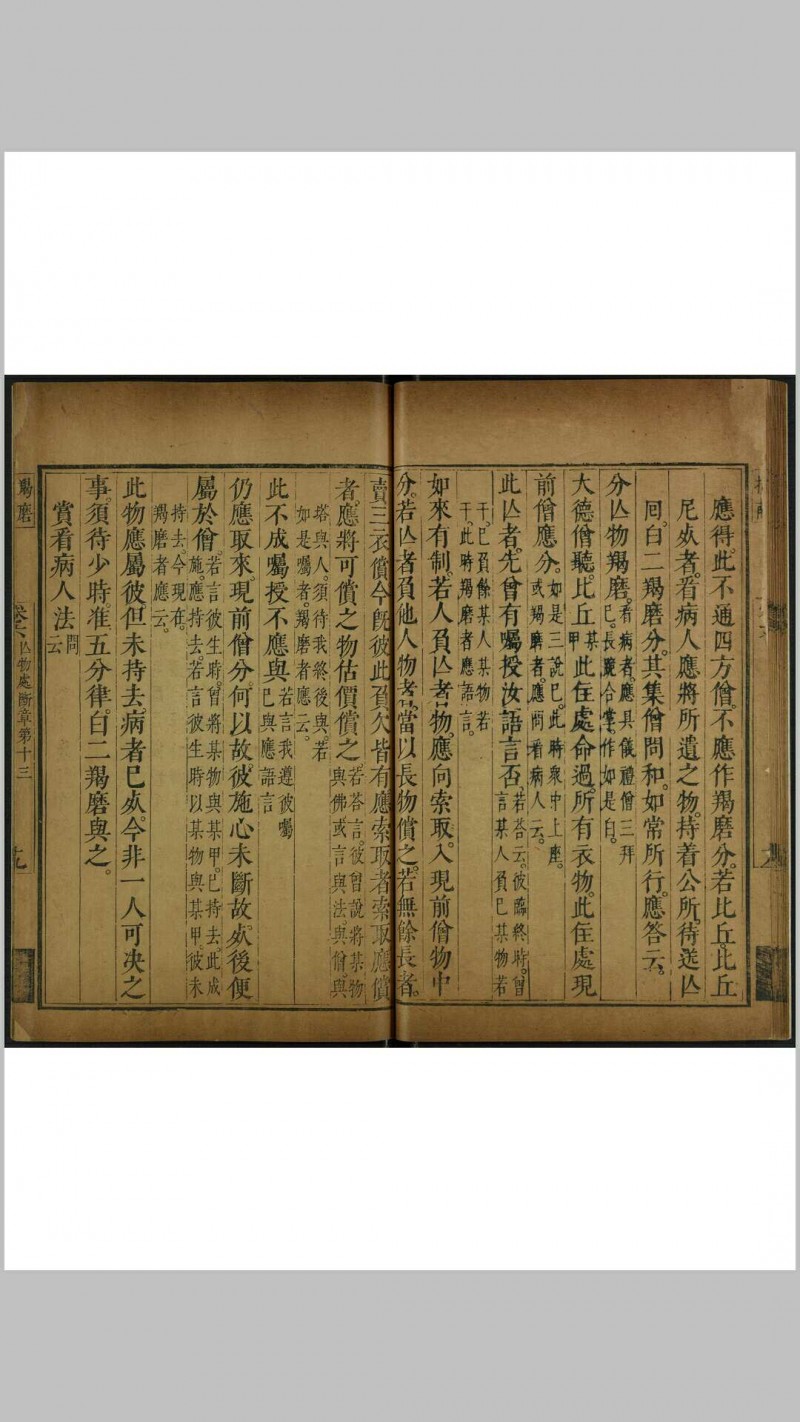 應得。此不通四方僧。不應作羯磨分。若比丘。比丘
尼𣦸者。看病人應將所遺之物。持着公所。待送亾
回。白二羯磨分。其集僧問和。如常所行。應答云。
分亾物羯磨。看病者。應具儀禮僧三拜
已。長跪合掌。作如是白。
大德僧聽。比丘某
甲此住處命過。所有衣物。此住處現
前僧應分。如是三說已。此時眾中上座。
或羯磨者。應兩看病人云。
此亾者。先曾有囑授汝語言否。若答云。彼臨終時。曾
言某人負巳某物若
干。巳負餘某人某物若
干。此時羯磨者應語言。
如來有制。若人負亾者物。應向索取。入現前僧物中
分。若亾者負他人物者。當以長物償之。若無餘長者。
賣三衣償今旣彼此負欠皆有應索取者索取應償
者。應將可償之物估價償之。若答言。彼曾說將某物
與佛或言與法。與僧與
塔與人。須待我終後與。若
如是囑者。羯磨者應云。
此不成囑授不應與若言我遵彼囑
已與應語言
仍應取來。現前僧分何以故。彼施心未斷故。𣦸後便
屬於僧。若言彼生時。曾將某物與某甲。巳持去。此成
施。應持去。若言彼生時以某物與某甲。彼未
持去。今現在。
羯磨者應云。
此物應屬彼但未持去。病者巳𣦸。今非一人可决之
事。須待少時。准五分律。白二羯磨與之。
賞看病人法問
云
羯磨 卷六 亾物處斷章第十三 十九